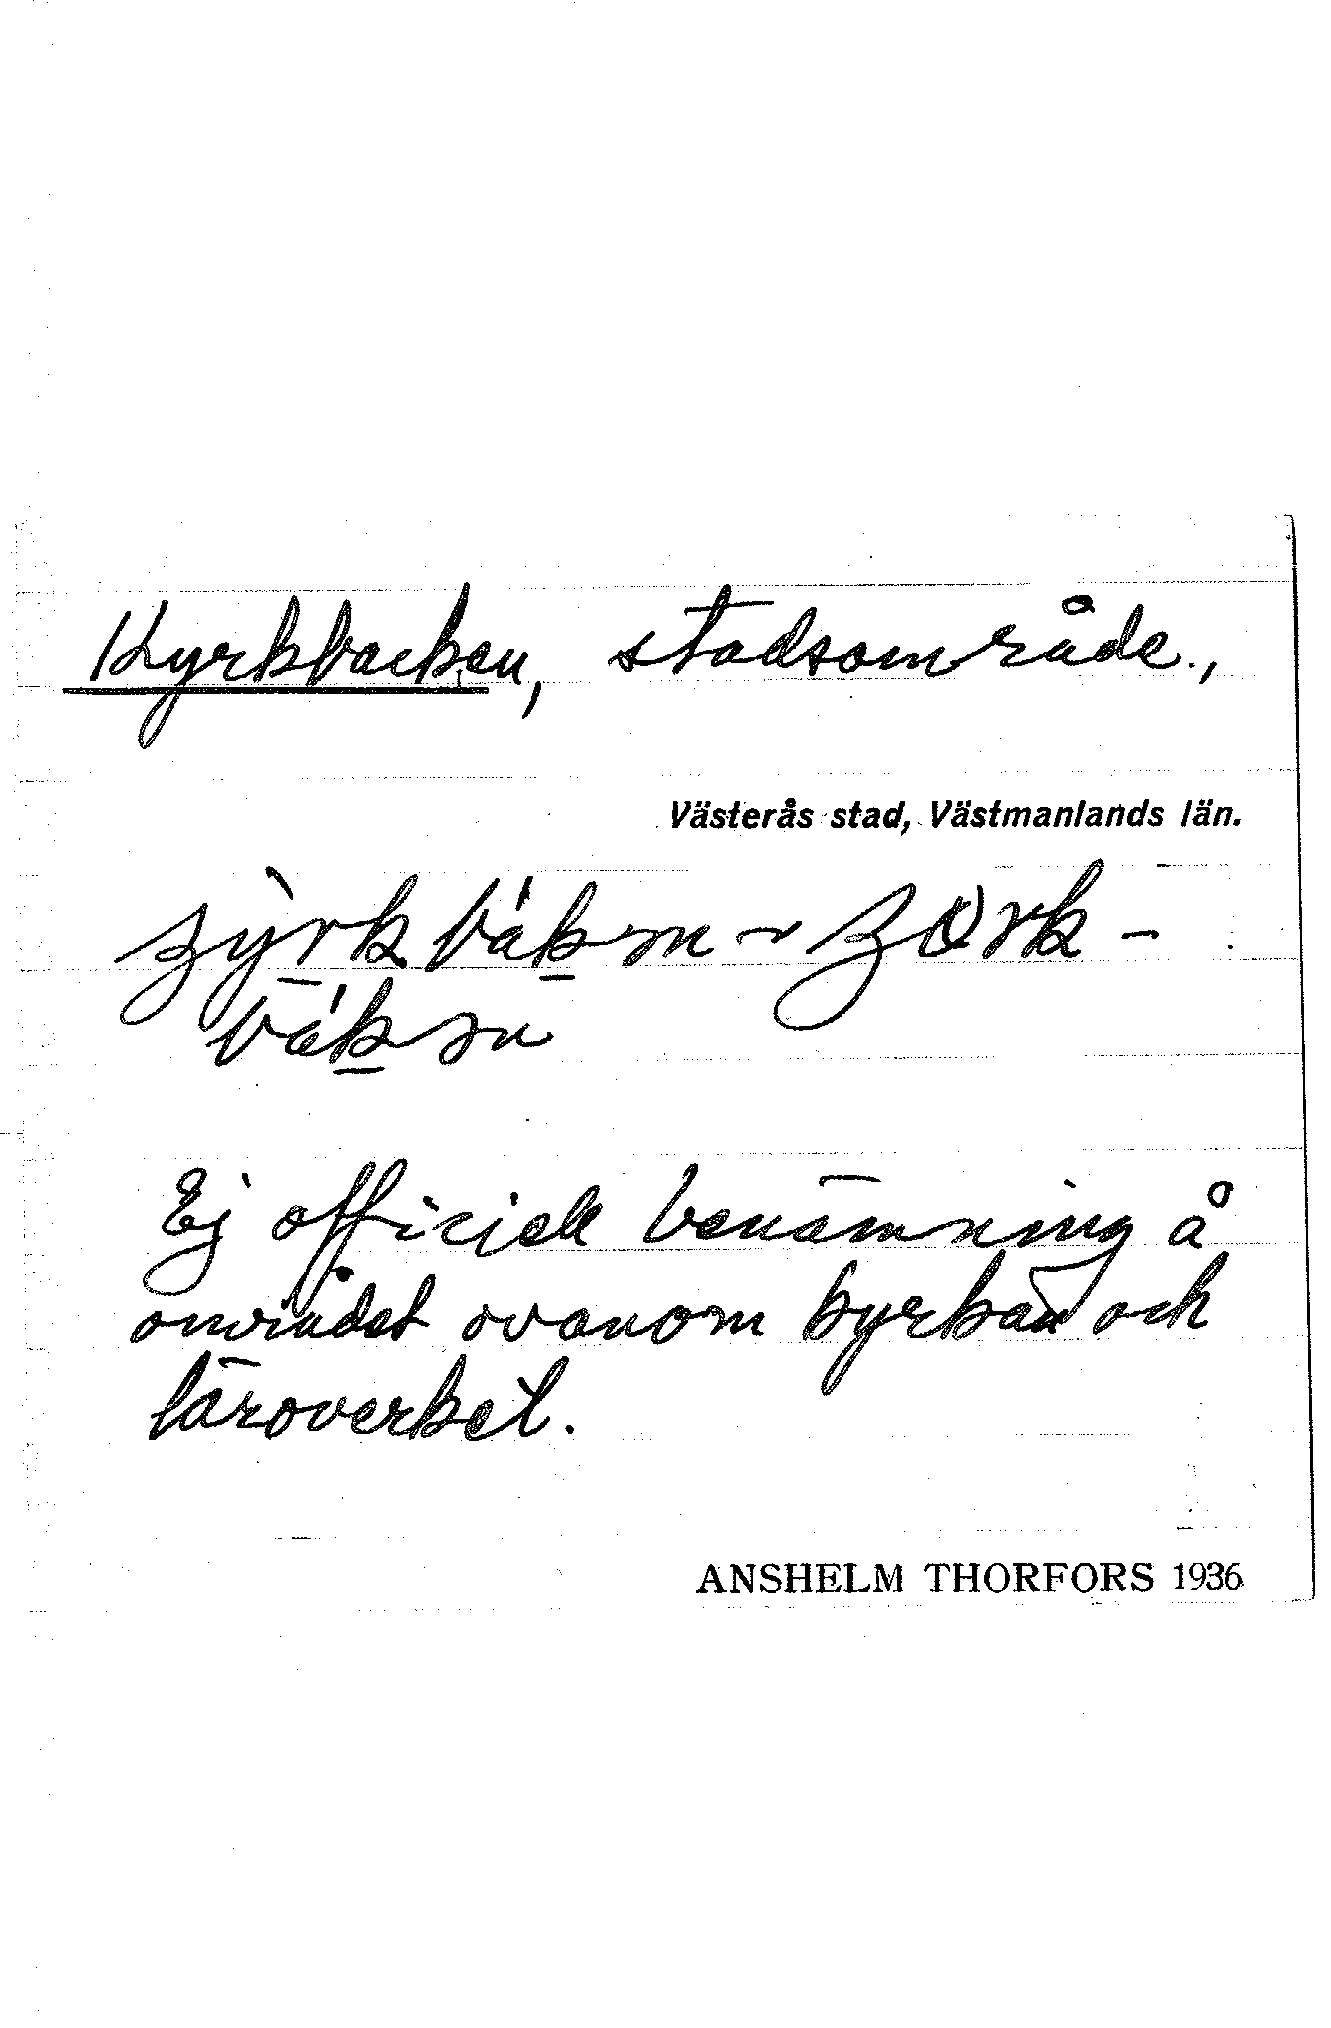 Kyrkbacken, stadsområde.,
Västerås stad, Västmanlands län.
Ej officiell benämning å
området ovanom kyrkan och
läroverket.
ANSHELM THORFORS 1936